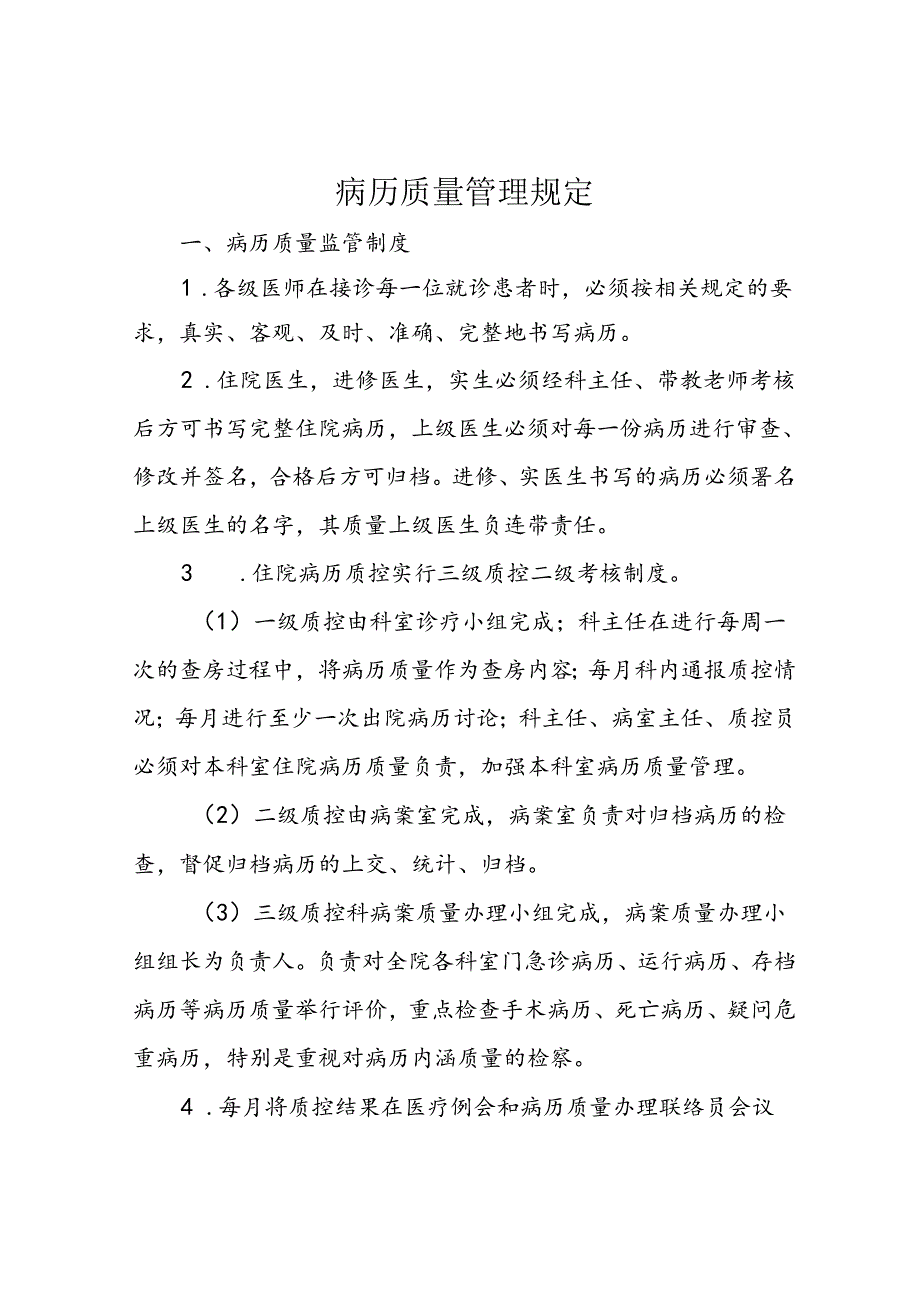 病历质量管理规定
一、病历质量监管制度
1 .各级医师在接诊每一位就诊患者时，必须按相关规定的要
求，真实、客观、及时、准确、完整地书写病历。
2 .住院医生，进修医生，实生必须经科主任、带教老师考核
后方可书写完整住院病历，上级医生必须对每一份病历进行审查、
修改并签名，合格后方可归档。进修、实医生书写的病历必须署名
上级医生的名字，其质量上级医生负连带责任。
3 .住院病历质控实行三级质控二级考核制度。
（1）一级质控由科室诊疗小组完成；科主任在进行每周一
次的查房过程中，将病历质量作为查房内容；每月科内通报质控情
况；每月进行至少一次出院病历讨论；科主任、病室主任、质控员
必须对本科室住院病历质量负责，加强本科室病历质量管理。
（2）二级质控由病案室完成，病案室负责对归档病历的检
查，督促归档病历的上交、统计、归档。
（3）三级质控科病案质量办理小组完成，病案质量办理小
组组长为负责人。负责对全院各科室门急诊病历、运行病历、存档
病历等病历质量举行评价，重点检查手术病历、死亡病历、疑问危
重病历，特别是重视对病历内涵质量的检察。
4 .每月将质控结果在医疗例会和病历质量办理联络员会议